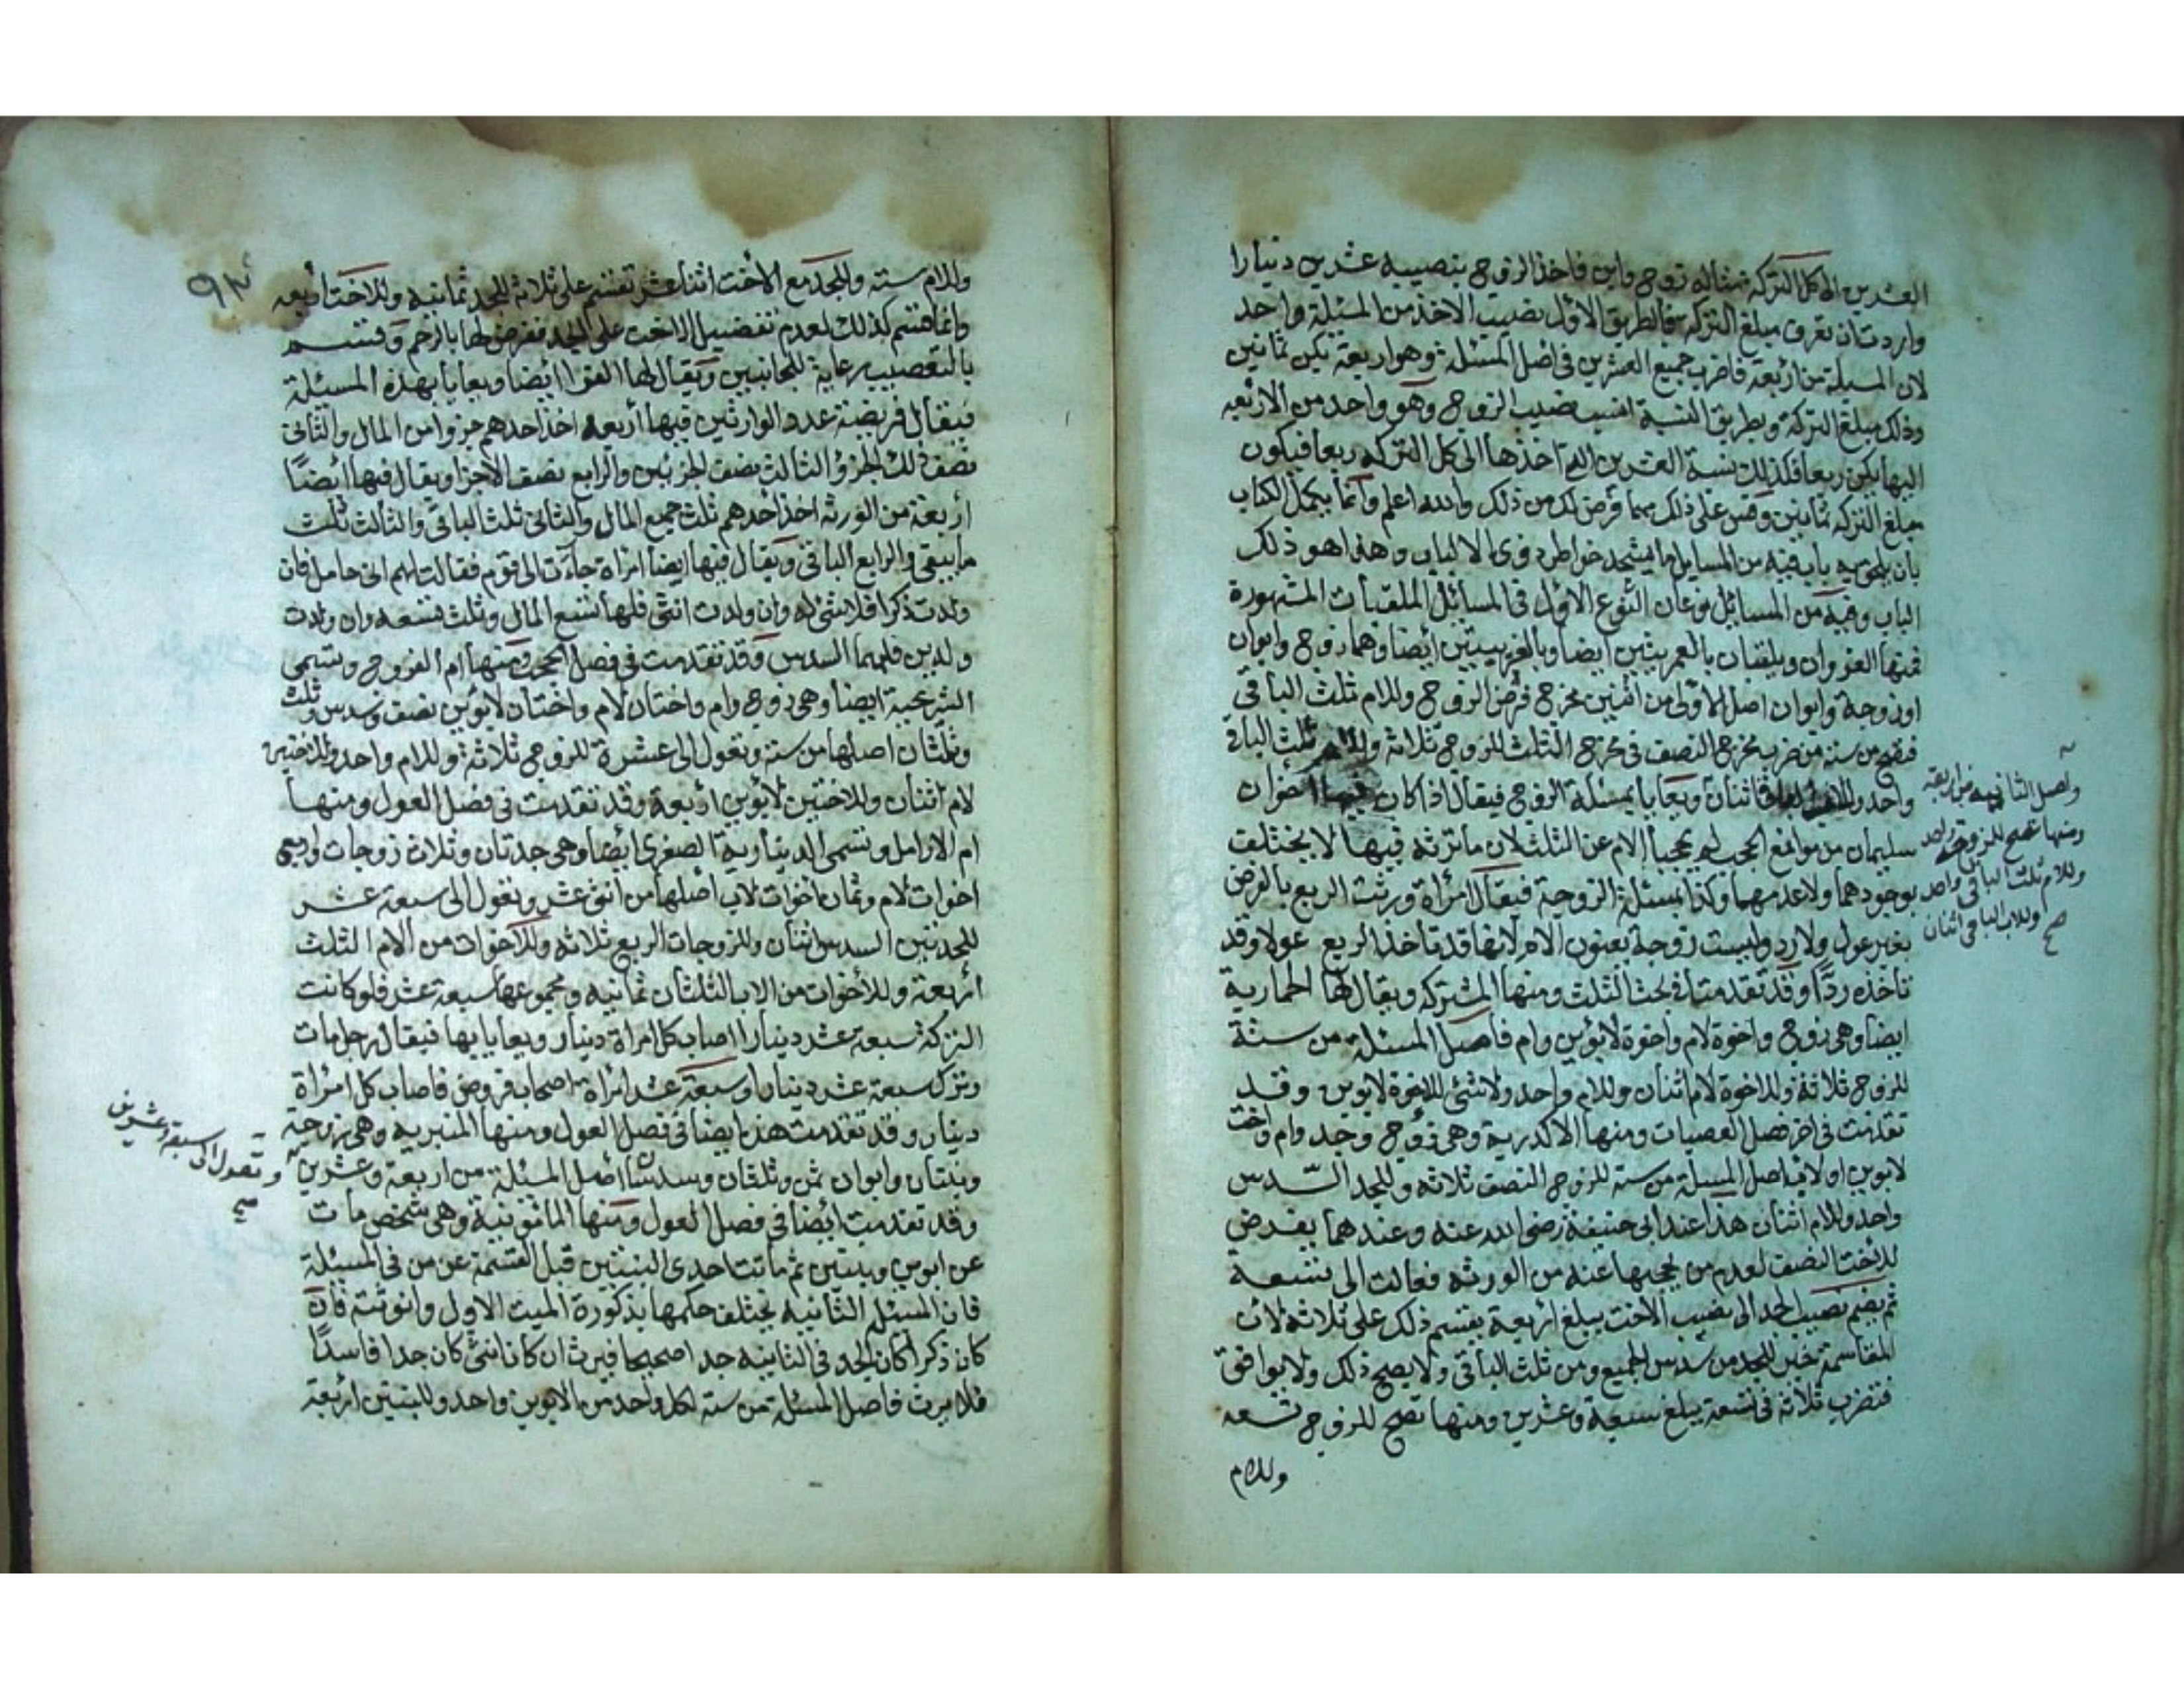 العشرين الى كل التركة مثاله زوج وابن فاخذ الزوج بنصيبه عشرين دينارا
واردت ان تعرف مبلغ التركة فالطريق الاول نصيب الاخذ من المسئلة واحد
لان المسيلة من اربعة فاضرب جميع العشرين في اصل المسئلة وهو اربعة يكن ثمانين
وذلك مبلغ التركة وبطريق النسبة انسب نصيب الزوج وهو واحد من الاربعه
اليها يكن ربعا فكذلك نسبة العشرين التي اخذها الى كل التركه ربعا فيكون
مبلغ التركه ثمانين وقس على ذلك مهما فرض لك من ذلك والله اعلم وانما يكمل الكتاب
بان يلحق به باب فيه من المسايل ما يشحذ خواطر ذوى الالباب وهذا هو ذلك
الباب وفيه من المسائل نوعان النوع الاول في المسائل الملقبات المشهورة
فمنها الغراوان ويلقبان بالعمريتين ايضا وبالغريبتين ايضا وهما زوج وابوان
او زوجة وابوان اصل الاولى من اثنين مخرج فرض الزوج وللام ثلث الباقي
فتصح من ستة من ضرب مخرج النصف في مخرج الثلث للزوج ثلاثة وللام ثلث الباقي
واحد وللاب الباقي اثنان ويعايا بمسئلة الزوج فيقال اذا كان فيها اخوان
سليمان من موانع الحجب لم يحجبا الام عن الثلث لان ما ترثه فيها لا يختلف
بوجودهما ولا عدمهما وكذا بمسئلة الزوجية فيقال امراة ورثت الربع بالفرض
بغير عول ولا رد وليست زوجة يعنون الام لانها قد تاخذ الربع عولا وقد
تاخذه ردا وقد تقدمتا في بحث الثلث ومنها المشتركه ويقال لها الحمارية
ايضا وهي زوج واخوة لام واخوة لابوين وام فاصل المسئلة من ستة
للزوج ثلاثة وللاخوة لام اثنان وللام واحد ولا شئ للاخوة لابوين وقد
تقدمت في اخر فصل العصبات ومنها الاكدرية وهي زوج وجد وام واخت
لابوين او لاب اصل المسيلة من ستة للزوج النصف ثلاثة وللجد السدس
واحد وللام اثنان هذا عند ابي حنيفة رضى الله عنه وعندهما يفرض
للاخت النصف لعدم من يحجبها عنه من الورثه فعالت الى تسعة
ثم يضم نصيب الجد الى نصيب الاخت يبلغ اربعة يقسم ذلك على ثلاثة لان
المقاسمة خير للجد من سدس الجميع ومن ثلث الباقي ولا يصح ذلك ولا يوافق
فتضرب ثلاثة في تسعة يبلغ سبعة وعشرين ومنها تصح للزوج تسعه
وللام
واصل الثانية من اربعة
ومنها تصح للزوجة واحد
وللام ثلث الباقي واحد
وللاب الباقي اثنان
صح
٩٣
وللام سته وللجد مع الاخت اثنا عشر تقسم على ثلاثة للجد ثمانيه وللاخت اربعه
وانما قسم كذلك لعدم تفضيل الاخت على الجد ففرض لها بالرحم وقسم
بالتعصيب رعاية للجانبين ويقال لها الغرا ايضا ويعايا بهذه المسئلة
فيقال فريضة عدد الوارثين فيها أربعه اخذ احدهم جزوا من المال والثاني
نصف ذلك الجزؤ والثالث نصف الجزئين والرابع نصف الاجزا ويقال فيها ايضا
اربعة من الورثه اخذ احدهم ثلث جميع المال والثاني ثلث الباقي والثالث ثلث
ما يبقى والرابع الباقي ويقال فيها ايضا امراة جاءت الى قوم فقالت لهم اني حامل فان
ولدت ذكرا فلا شئ له وان ولدت انثى فلها تسع المال وثلث تسعه وان ولدت
ولدين فلهما السدس وقد تقدمت في فصل الحجب ومنها ام الفروج وتسمى
الشريحية ايضا وهي زوج وام واختان لام واختان لابوين نصف وسدس وثلث
وثلثان اصلها من ستة وتعول الى عشرة للزوج ثلاثة وللام واحد وللاختين
لام اثنان وللاختين لابوين اربعة وقد تقدمت في فصل العول ومنها
ام الارامل وتسمى الدينارية الصغرى ايضا وهي جدتان وثلاث زوجات واربع
اخوات لام وثمان اخوات لاب اصلها من اثنى عشر وتعول الى سبعة عشر
للجدتين السدس اثنان وللزوجات الربع ثلاثة وللاخوات من الام الثلث
اربعة وللأخوات من الاب الثلثان ثمانيه ومجموعها سبعة عشر فلو كانت
التركة سبعة عشر دينارا اصاب كل امراة دينار ويعايا بها فيقال رجل مات
وترك سبعة عشر دينارا وسبعة عشر امراة اصحاب فروض فاصاب كل امراة
دينار وقد تقدمت هذه ايضا في فصل العول ومنها المنبريه وهي زوجة
وبنتان وابوان ثمن وثلثان وسدسان اصل المسئلة من اربعة وعشرين
وقد تقدمت أيضا في فصل العول ومنها المامونية وهي شخص مات
عن ابوين وبنتين ثم ماتت احدى البنتين قبل القسمة عن من في المسئلة
فان المسئله الثانيه يختلف حكمها بذكورة الميت الاول وانوثته فان
كان ذكرا كان الجد في الثانية جدا صحيحا فيرث ان كانت انثى كان جدا فاسدا
فلا يرث فاصل المسئلة من سته لكل واحد من الابوين واحد وللبنتين اربعة
وتعول الى سبعة وعشرين
صح